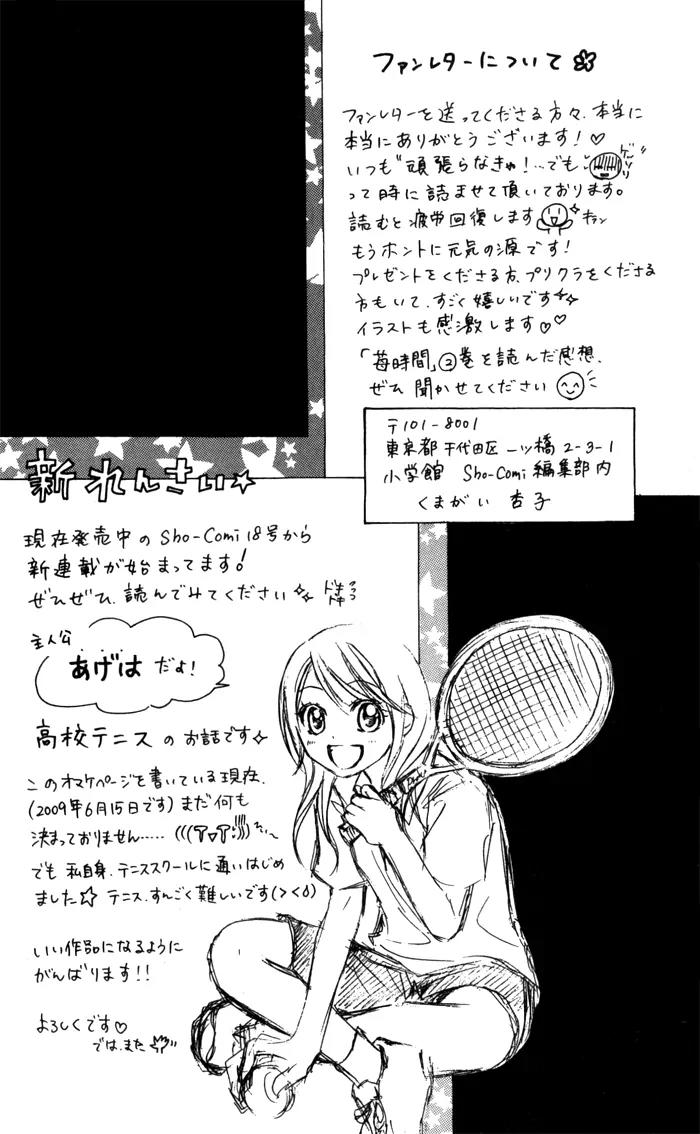 ファンレターについて
ファンレターを送ってくださる方々、本当に
本当にありがとうございます!♡
いつも"頑張らなきゃ!…でも…
ゲンナリ
って時に読ませて頂いております。
読むと疲労回復します
キラン
もうホントに元気の源です!
プレゼントをくださる方、プリクラをくださる
方もいて、すごく嬉しいです
イラストも感激します♡♡
「苺時間」②巻を読んだ感想、
ぜひ聞かせてください
〒101-8001
東京都千代田区一ツ橋2-3-1
小学館 Sho-Comi編集部内
くまがい杏子
新れんさい☆
現在発売中のSho-Comi 18号から
新連載が始まってます!
ぜひぜひ、読んでみてください
ドキドキ
主人公
あげはだよ!
高校テニスのお話です
このオマケページを書いている現在、
(2009年6月15日です)まだ何も
決まっておりません……(((T▽T)))
でも私自身、テニススクールに通いはじめ
ました☆テニス、すんごく難しいです(><)
いい作品になるように
がんばります!!
よろしくです♡
では、また